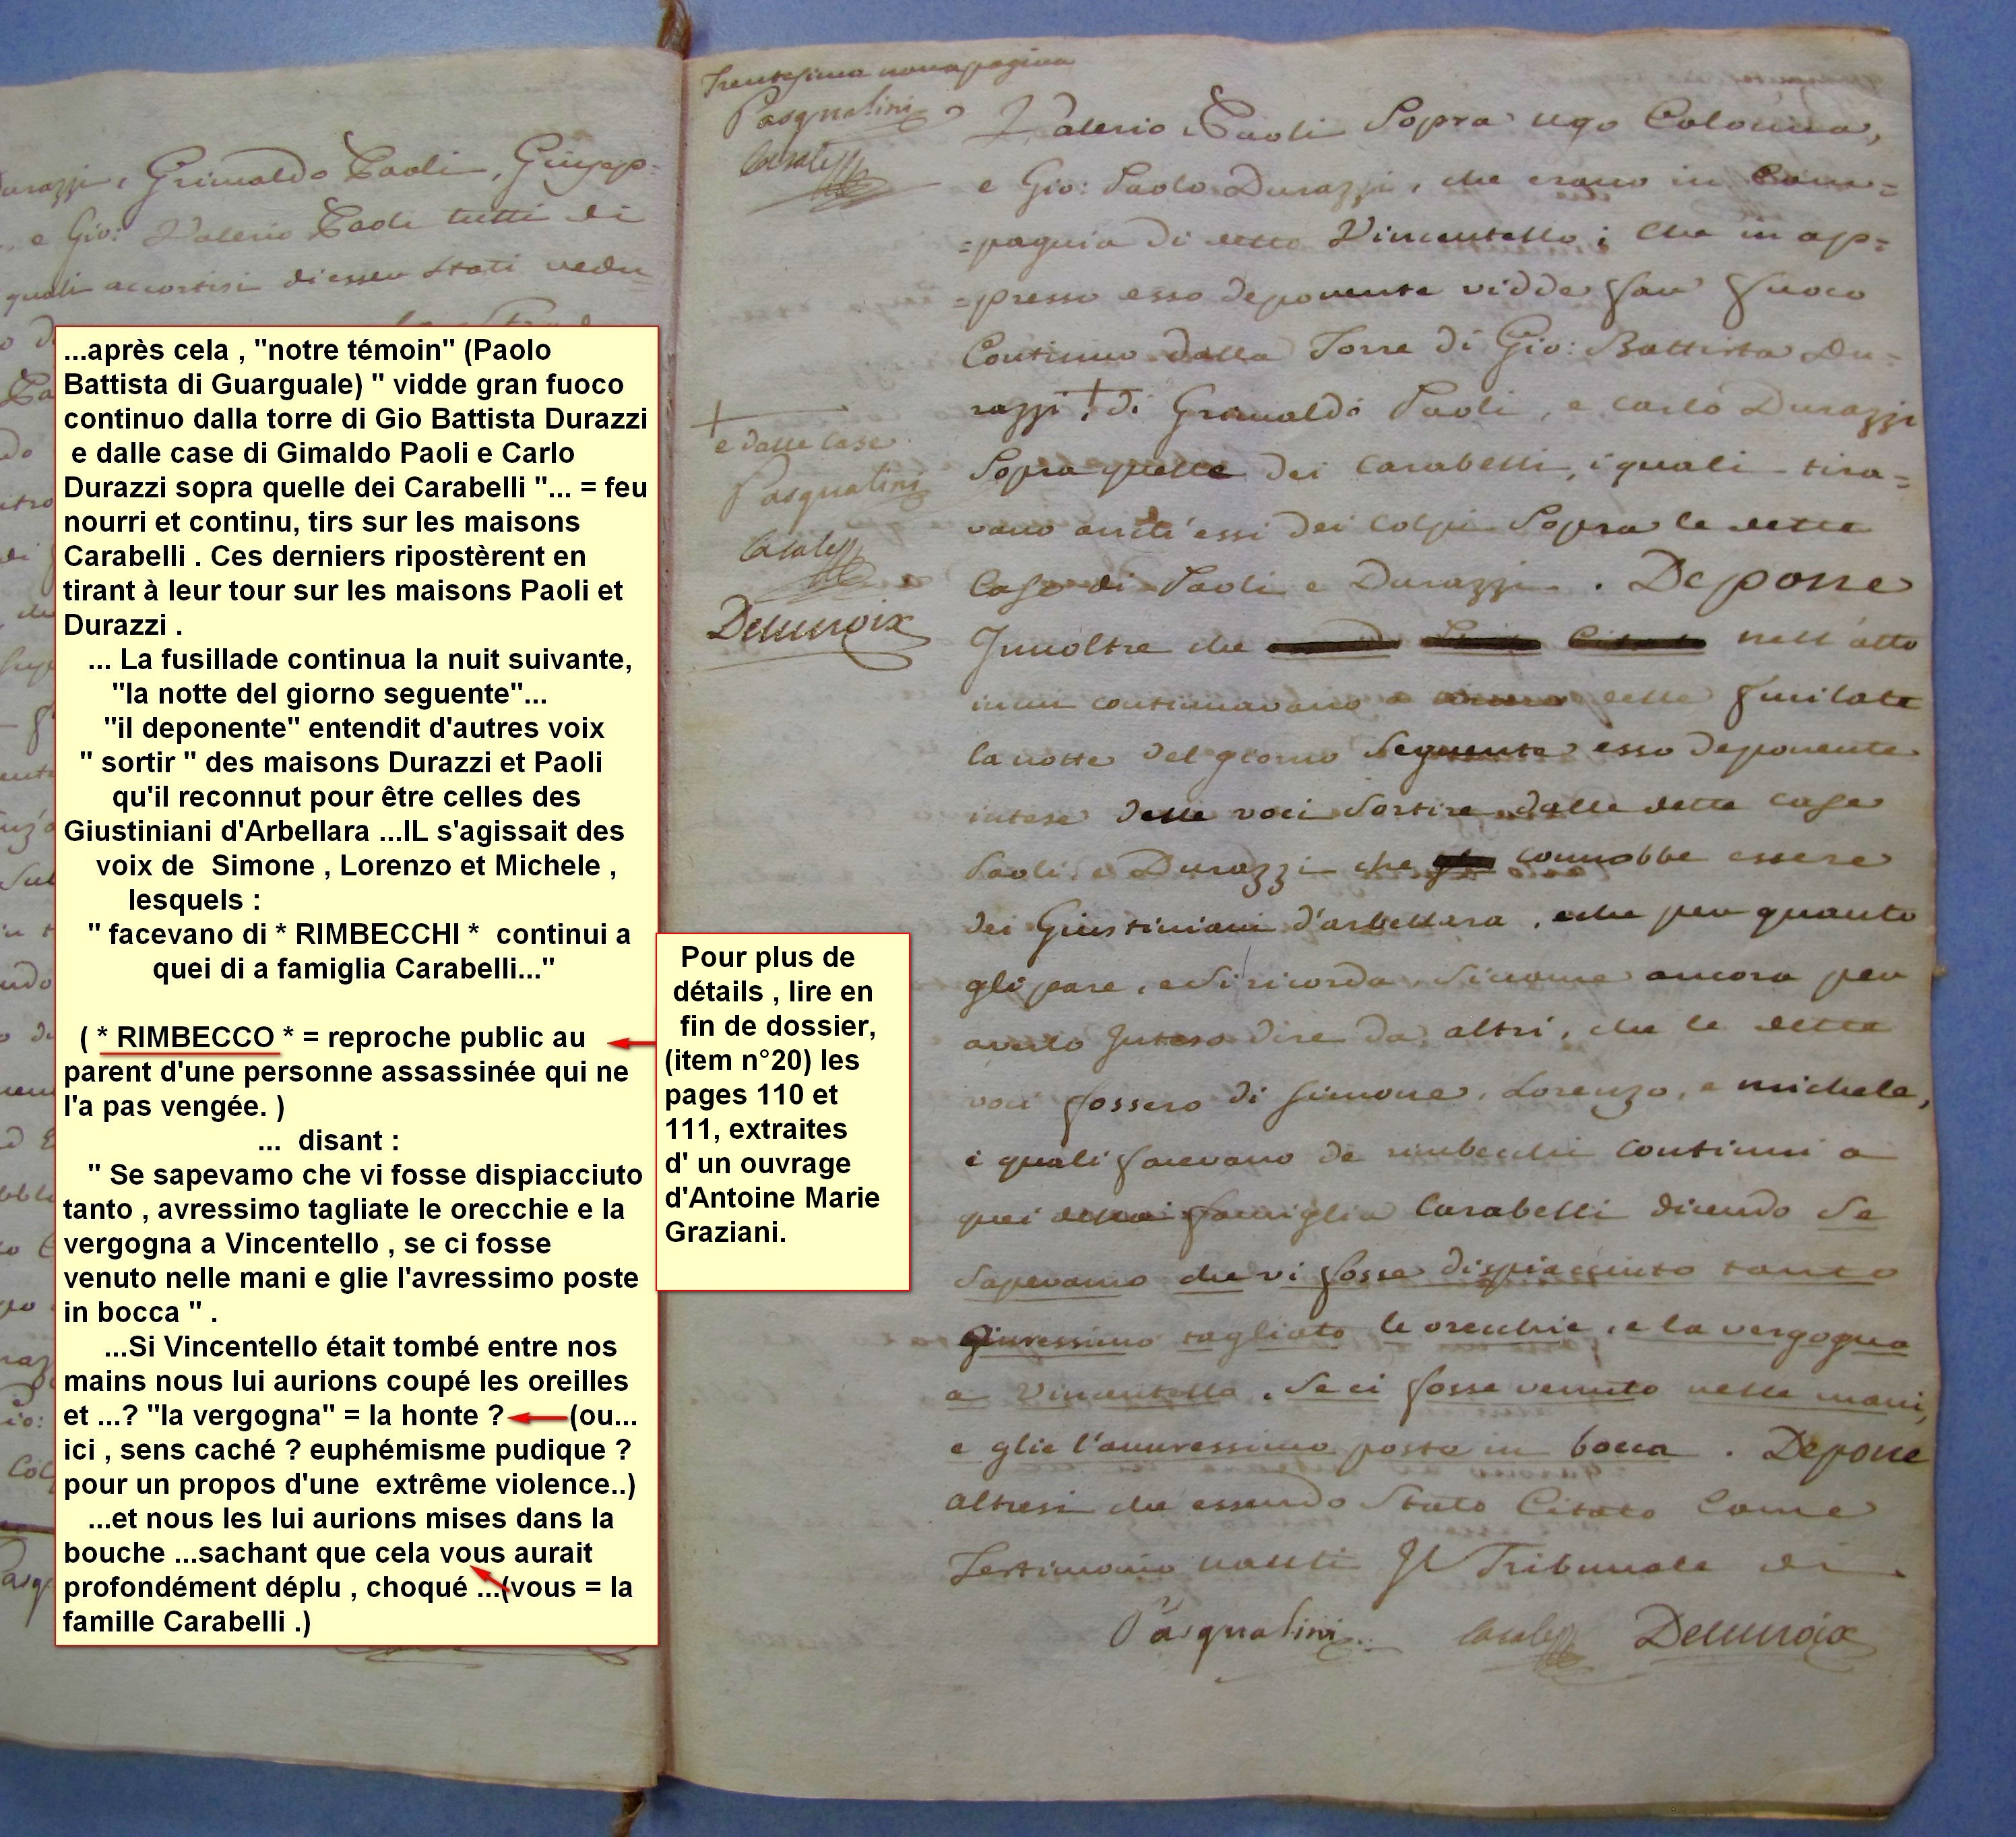 Durazzi, Grimaldo Paoli, Giusep-
e Gio: Valerio Paoli tutti di
quali accortisi di esser stati vedu=
...après cela , "notre témoin" (Paolo
Battista di Guarguale) " vidde gran fuoco
continuo dalla torre di Gio Battista Durazzi
e dalle case di Gimaldo Paoli e Carlo
Durazzi sopra quelle dei Carabelli "... = feu
nourri et continu, tirs sur les maisons
Carabelli . Ces derniers ripostèrent en
tirant à leur tour sur les maisons Paoli et
Durazzi .
... La fusillade continua la nuit suivante,
"la notte del giorno seguente"...
"il deponente" entendit d'autres voix
" sortir " des maisons Durazzi et Paoli
qu'il reconnut pour être celles des
Giustiniani d'Arbellara ...IL s'agissait des
voix de Simone , Lorenzo et Michele ,
lesquels :
" facevano di * RIMBECCHI * continui a
quei di a famiglia Carabelli..."
( * RIMBECCO * = reproche public au
parent d'une personne assassinée qui ne
l'a pas vengée. )
... disant :
" Se sapevamo che vi fosse dispiacciuto
tanto , avressimo tagliate le orecchie e la
vergogna a Vincentello , se ci fosse
venuto nelle mani e glie l'avressimo poste
in bocca " .
...Si Vincentello était tombé entre nos
mains nous lui aurions coupé les oreilles
et ...? "la vergogna" = la honte ? (ou...
ici , sens caché ? euphémisme pudique ?
pour un propos d'une extrême violence..)
...et nous les lui aurions mises dans la
bouche ...sachant que cela vous aurait
profondément déplu , choqué ...(vous = la
famille Carabelli .)
Pour plus de
détails , lire en
fin de dossier,
(item n°20) les
pages 110 et
111, extraites
d' un ouvrage
d'Antoine Marie
Graziani.
Trentesima nona pagina
Pasqualini
e dalle case
Pasqualini
Delacroix
Valerio Paoli sopra Ugo Colonna,
e Gio: Paolo Durazzi, che erano in Com=
=pagnia di detto Vincentello; che in ap=
=presso esso deponente vidde fau fuoco
Continuo dalla Torre di Gio: Battista Du=
razzi, di Grimaldo Paoli, e Carlo Durazzi
sopra quelle dei Carabelli, i quali tira=
vano anch'essi dei colpi sopra le dette
Case di Paoli e Durazzi. Depone
Innoltre che nell'atto
in cui continuavano delle fucilate
la notte del giorno seguente esso deponente
intese delle voci sortire dalle dette case
Paoli, e Durazzi che connobbe essere
dei Giustiniani d'arbellara, e che per quanto
gli pare, e si ricorda, siccome ancora per
averlo Inteso dire da altri, che le dette
voci fossero di Simone, Lorenzo, e Michele,
i quali facevano de rimbecchi continui a
quei famiglia Carabelli dicendo Se
sapevamo che vi fosse dispiacciuto tanto
tagliato le orecchie, e la vergogna
a Vincentello, Se ci fosse venuto nelle mani,
e glie l'auuressimo poste in bocca. Depone
altresì che essendo Stato Citato Come
Testimonio Il Tribunale di
Pasqualini Delacroix